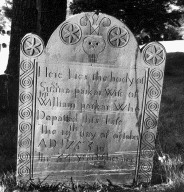 Here lies the body of
Susana parker Wife of
William parker Who
Departed this life
the day of october
AD